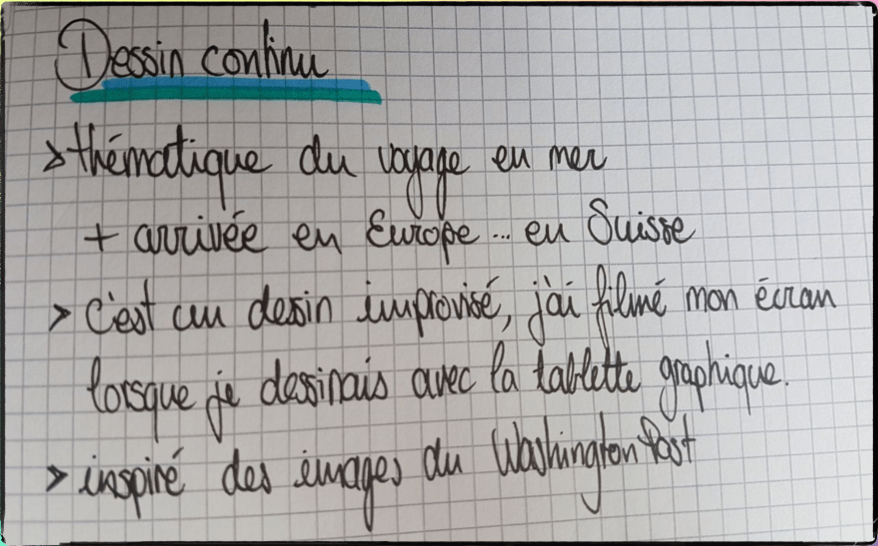 Dessin continu
> thématique du voyage en mer
+ arrivée en Europe... en Suisse
> c'est un dessin improvisé, j'ai filmé mon écran
lorsque je dessinais avec la tablette graphique.
> inspiré des images du Washington Post